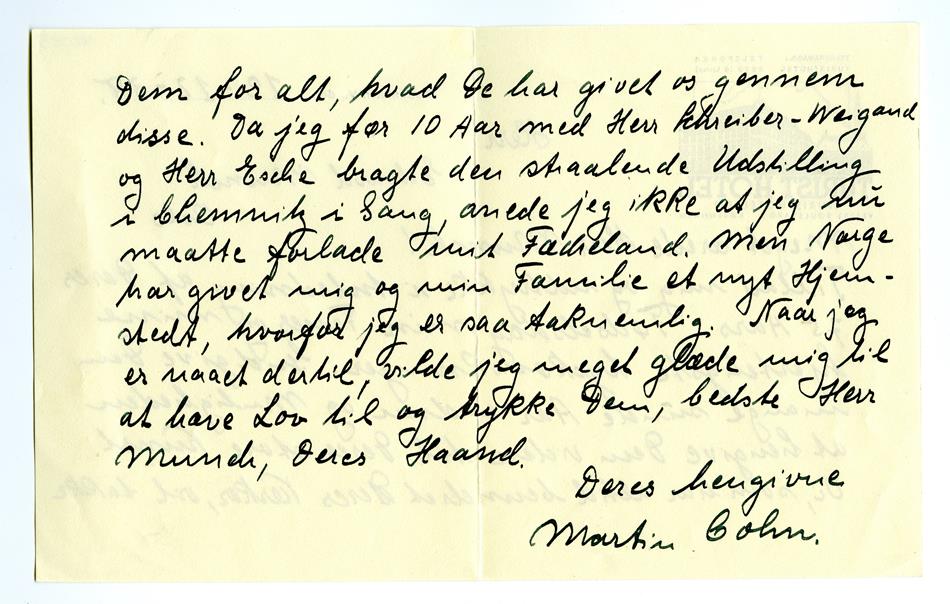 Dem for alt, hvad De har givet os gennem
disse. Da jeg før 10 Aar med Herr Schreiber-Weigand
og Herr Esche bragte den straalende Udstilling
i Chemnitz i Gang, anede jeg ikke at jeg nu
maatte forlade mit Fædreland. Men Norge
har givet mig og min Familie et nyt Hjem-
stedt, hvorfor jeg er saa taknemlig. Naar jeg
er naaet dertil, vilde jeg meget glæde mig til
at have Lov til og trykke Dem, bedste Herr
Munch, Deres Haand.
Deres hengivne
Martin Cohn.